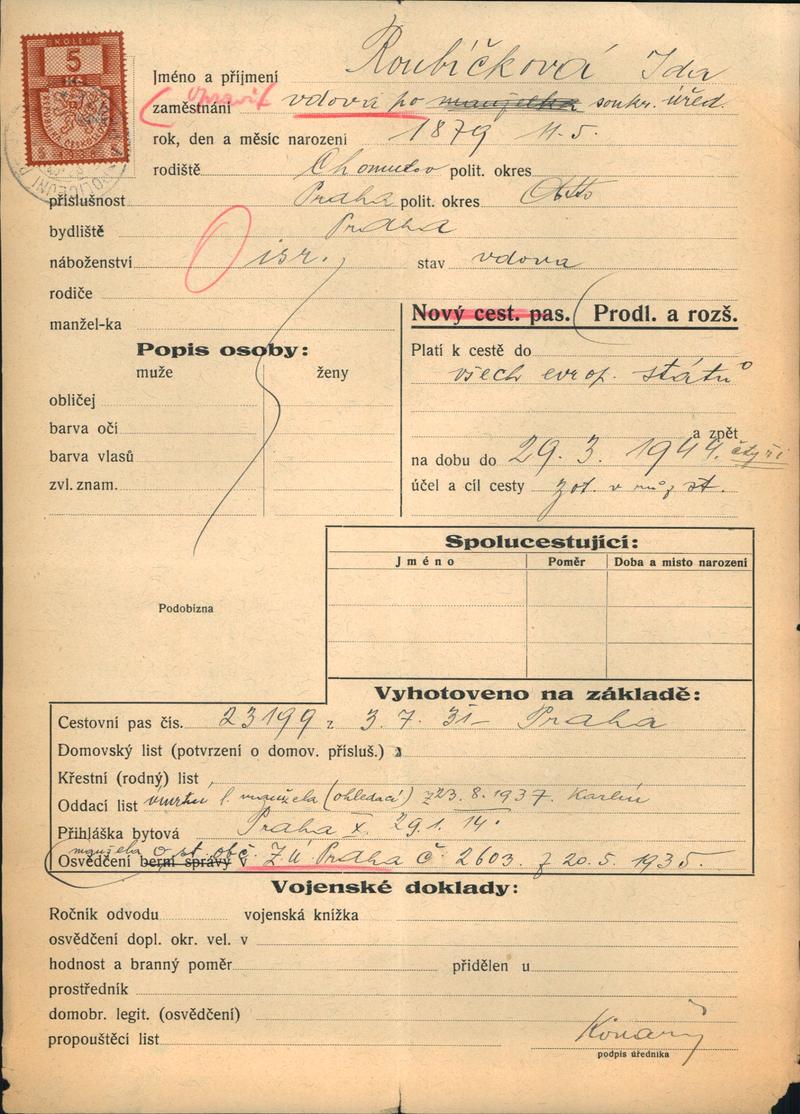 KOLEK
5
Kč
1938
POLICEJNÍ
Jméno a příjmení Roubíčková Ida
upravit
zaměstnání vdova po manželka soukr. úřed.
rok, den a měsíc narození 1879 11.5.
rodiště Chomutov polit. okres
příslušnost Praha polit. okres Otto
bydliště Praha
náboženství isr. stav vdova
rodiče
manžel-ka
Nový cest. pas. Prodl. a rozš.
Popis osoby:
muže ženy
obličej
barva očí
barva vlasů
zvl. znam.
Platí k cestě do
všech evrop. států
a zpět
na dobu do 29. 3. 1944. čtyři
účel a cíl cesty zot. v růz st.
Spolucestující:
Jméno Poměr Doba a místo narození
Podobizna
Vyhotoveno na základě:
Cestovní pas čís. 23199 z 3. 7. 31 – Praha
Domovský list (potvrzení o domov. přísluš.)
Křestní (rodný) list
Oddací list úmrtní l. manžela (ohledací) z 23. 8. 1937. Karlín
Přihláška bytová Praha X. 29.1. 14.
manžela o st. obč.
Osvědčení berní správy v Z.Ú. Praha č. 2603. z 20. 5. 1935.
Vojenské doklady:
Ročník odvodu vojenská knížka
osvědčení dopl. okr. vel. v
hodnost a branný poměr přidělen u
prostředník
domobr. legit. (osvědčení)
propouštěcí list
podpis úředníka